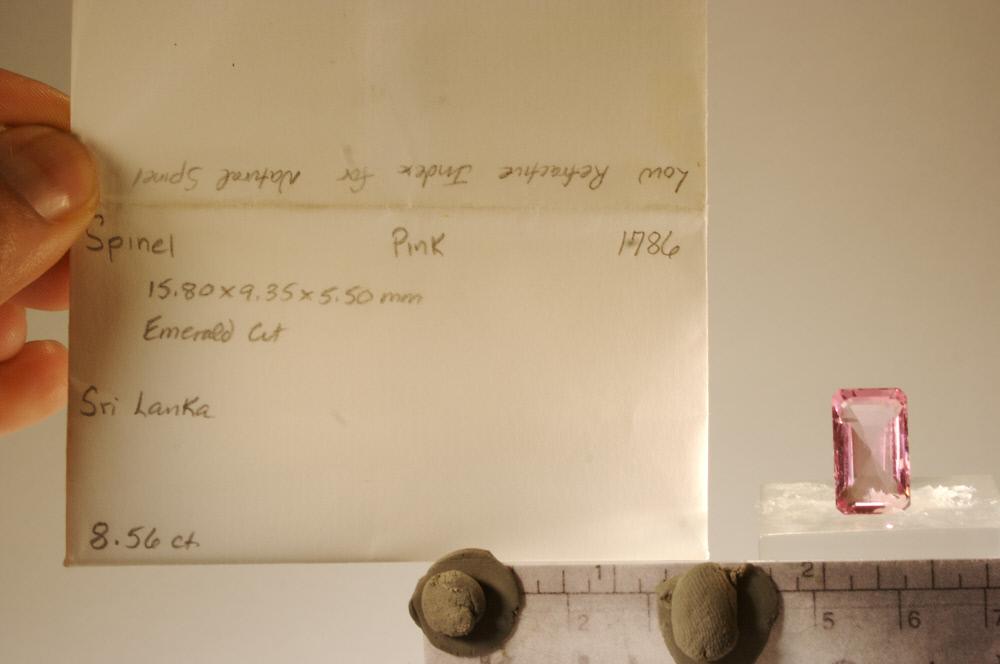 Low Refractive Index for Natural Spinel
Spinel Pink 1786
15.80 x 9.35 x 5.50 mm
Emerald Cut
Sri Lanka
8.56 ct.
1 2
2 5 6 7